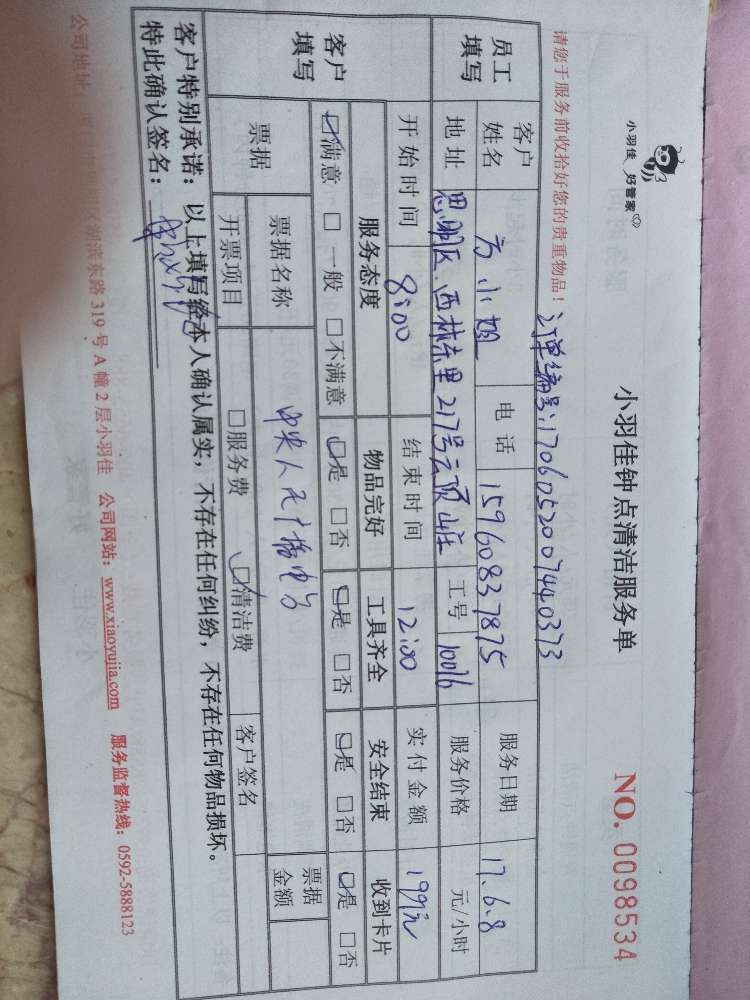 小羽佳 好管家
小羽佳钟点清洁服务单
NO. 0098534
请您于服务前收拾好您的贵重物品！
订单编号:1706052007440373
员工填写
客户姓名 方小姐 电话 15960837875 服务日期 17.6.8
地址 思明区、西林东里217号云顶山庄 工号 10016 服务价格 元/小时
开始时间 8:00 结束时间 12:00 实付金额 199元
客户填写
服务态度 物品完好 工具齐全 安全结束 收到卡片
☑满意 □一般 □不满意 ☑是 □否 ☑是 □否 ☑是 □否 ☑是 □否
票据 票据名称 中央人民广播电台 票据金额
开票项目 □服务费 ☑清洁费 客户签名
客户特别承诺：以上填写经本人确认属实，不存在任何纠纷，不存在任何物品损坏。
特此确认签名：
公司地址: 湖滨东路 319 号 A 幢 2 层小羽佳 公司网站：www.xiaoyujia.com 服务监督热线：0592-5888123